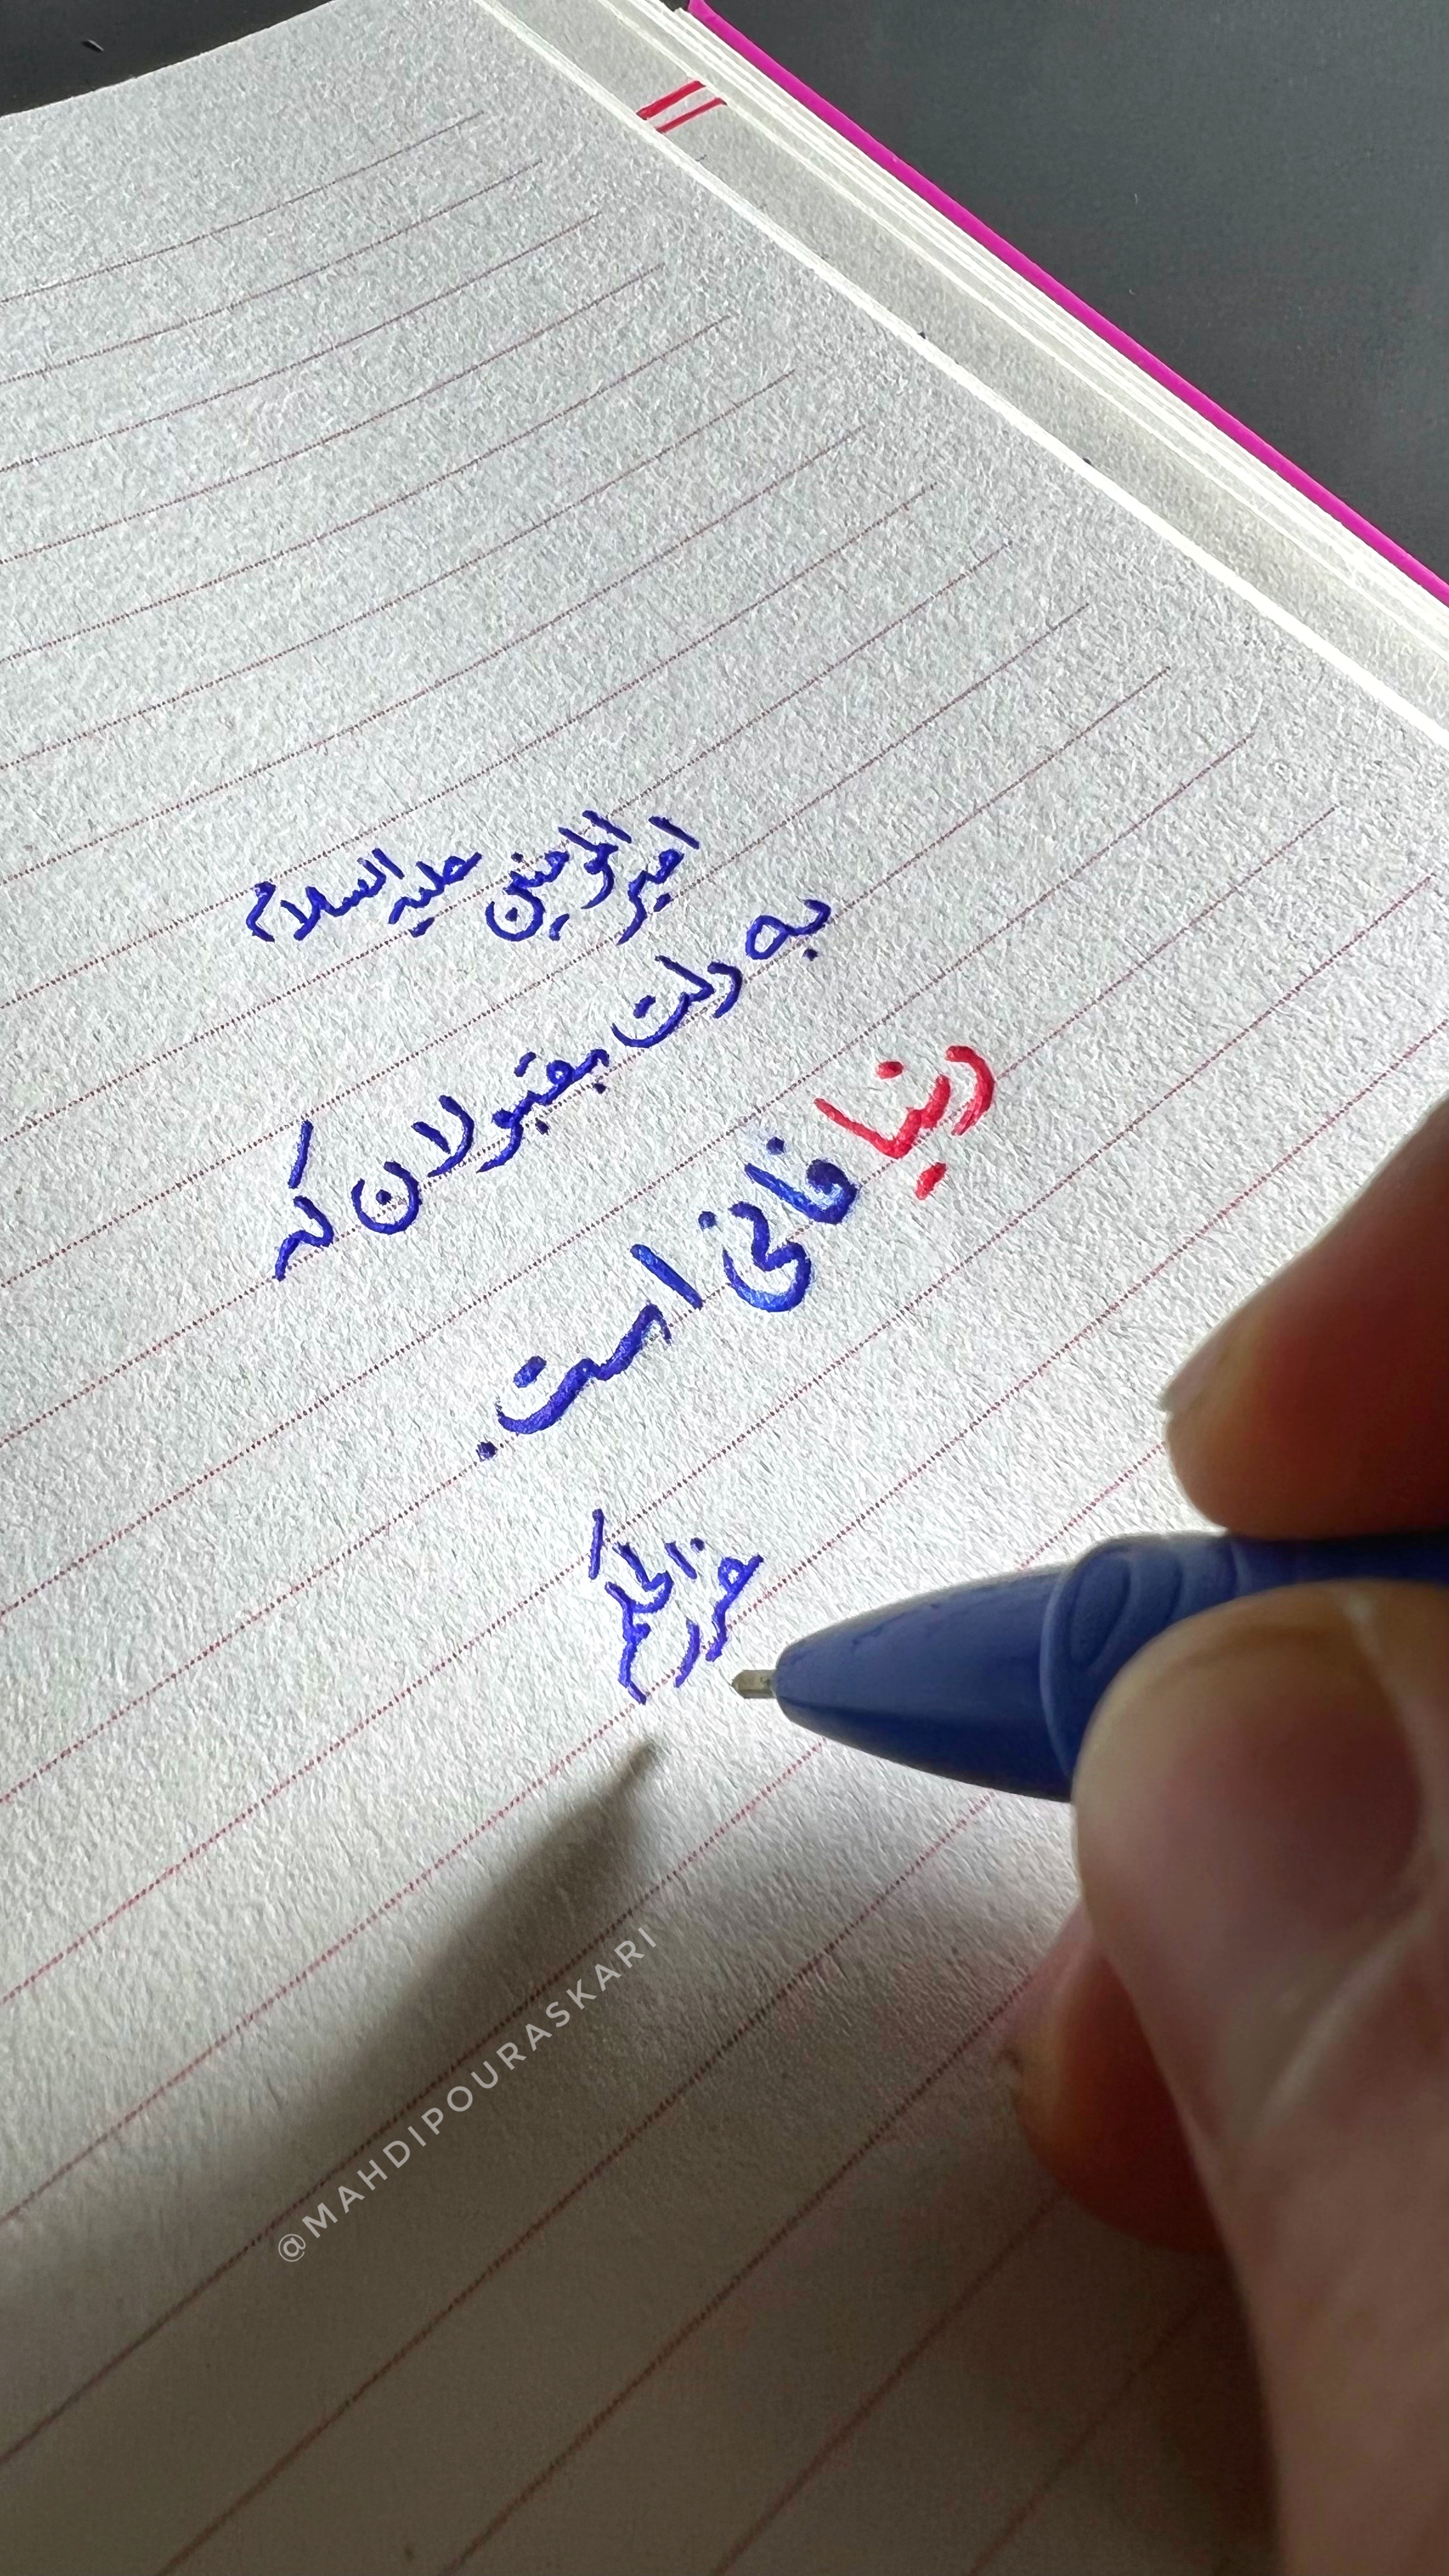 امیرالمومنین علیه السلام
به دلت بقبولان که
دنیا فانی است.
غررالحکم
@MAHDIPOURASKARI